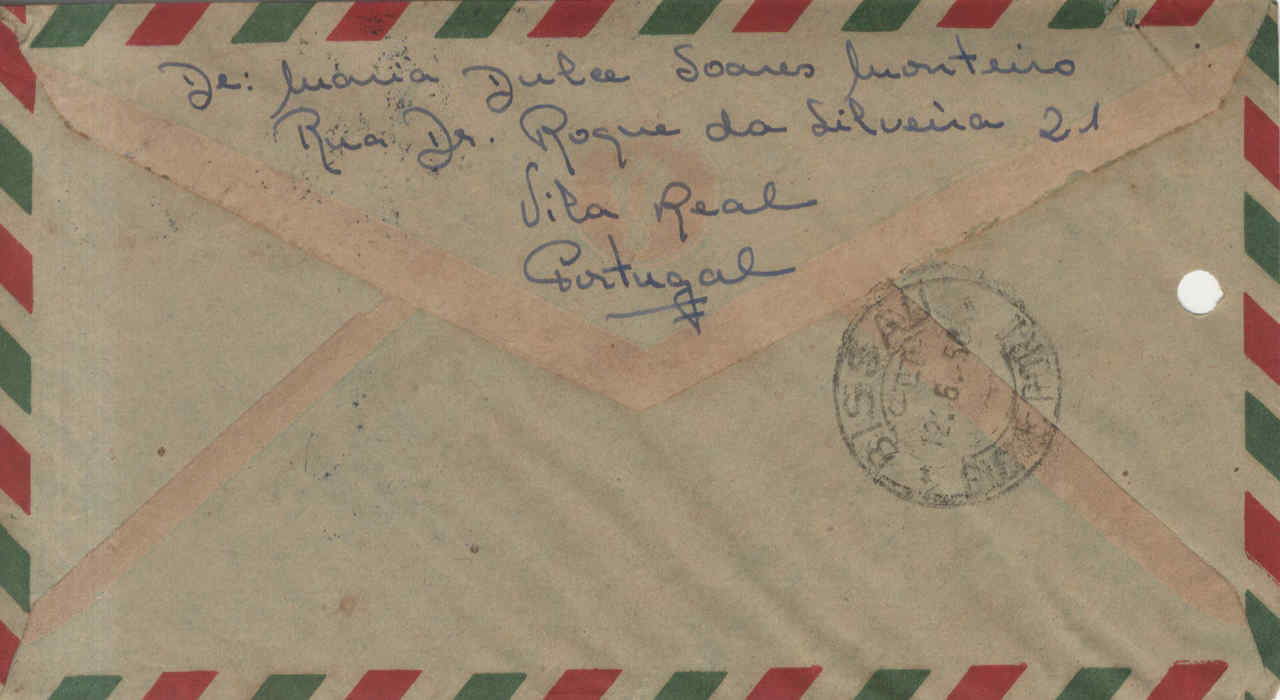 De: Maria Dulce Soares Monteiro
Rua Dr. Roque da Silveira 21
Vila Real
Portugal
BISSAU